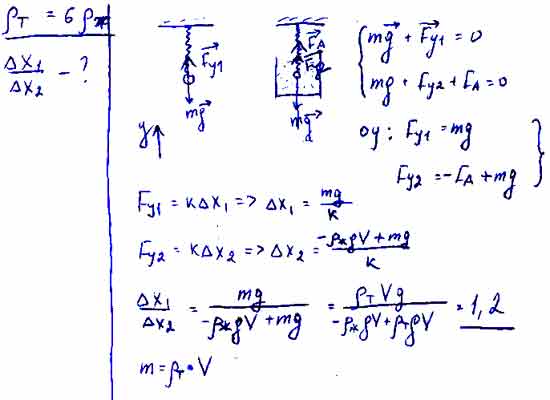 ρт = 6 ρж
Δx₁/Δx₂ - ?
Fy1
mg
FA
mg
y
mg + Fy1 = 0
mg + Fy2 + FA = 0
oy: Fy1 = mg
Fy2 = -FA + mg
Fy1 = kΔx₁ => Δx₁ = mg/k
Fy2 = kΔx₂ => Δx₂ = (-ρжgV + mg)/k
Δx₁/Δx₂ = mg/(-ρжgV + mg) = ρтVg/(-ρжgV + ρтgV) = 1,2
m = ρт • V